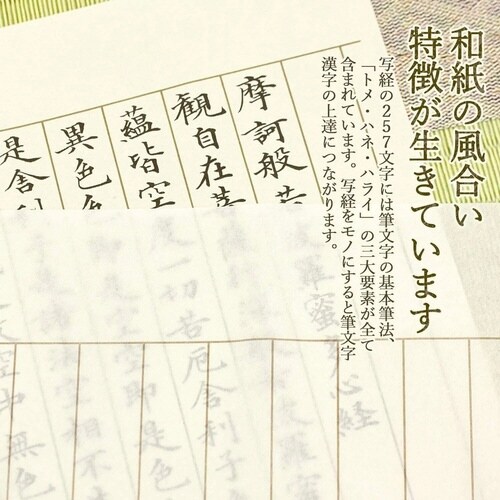 和紙の風合い
特徴が生きています
写経の257文字には筆文字の基本筆法、
「トメ・ハネ・ハライ」の三大要素が全て
含まれています。写経をモノにすると筆文字
漢字の上達につながります。
摩訶般若波羅蜜多心経
觀自在菩
蘊皆空度一切苦厄舎利子
異色色即是空空即是色
是舎利子是諸法空相不
空中無色